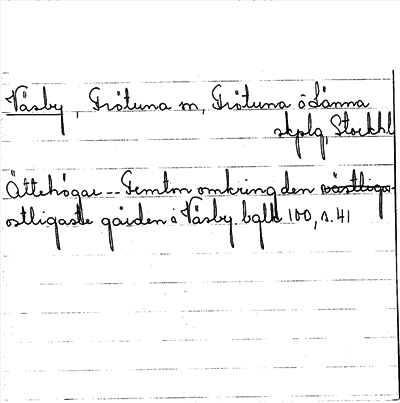 Väsby, Frötuna sn, Frötuna o Länna
skplg, Stockhl
Ättehögar -- Femton omkring den västliga
ostligaste gården i Väsby. bglk 100, s. 41